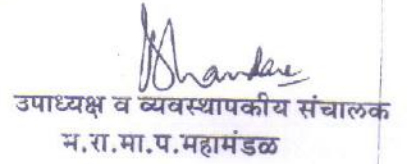 उपाध्यक्ष व व्यवस्थापकीय संचालक
म.रा.मा.प.महामंडळ